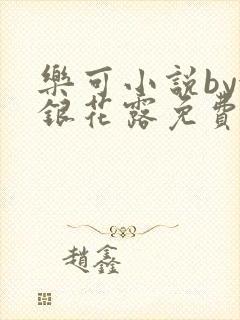 樂可小說by
銀花露免費
趙鑫